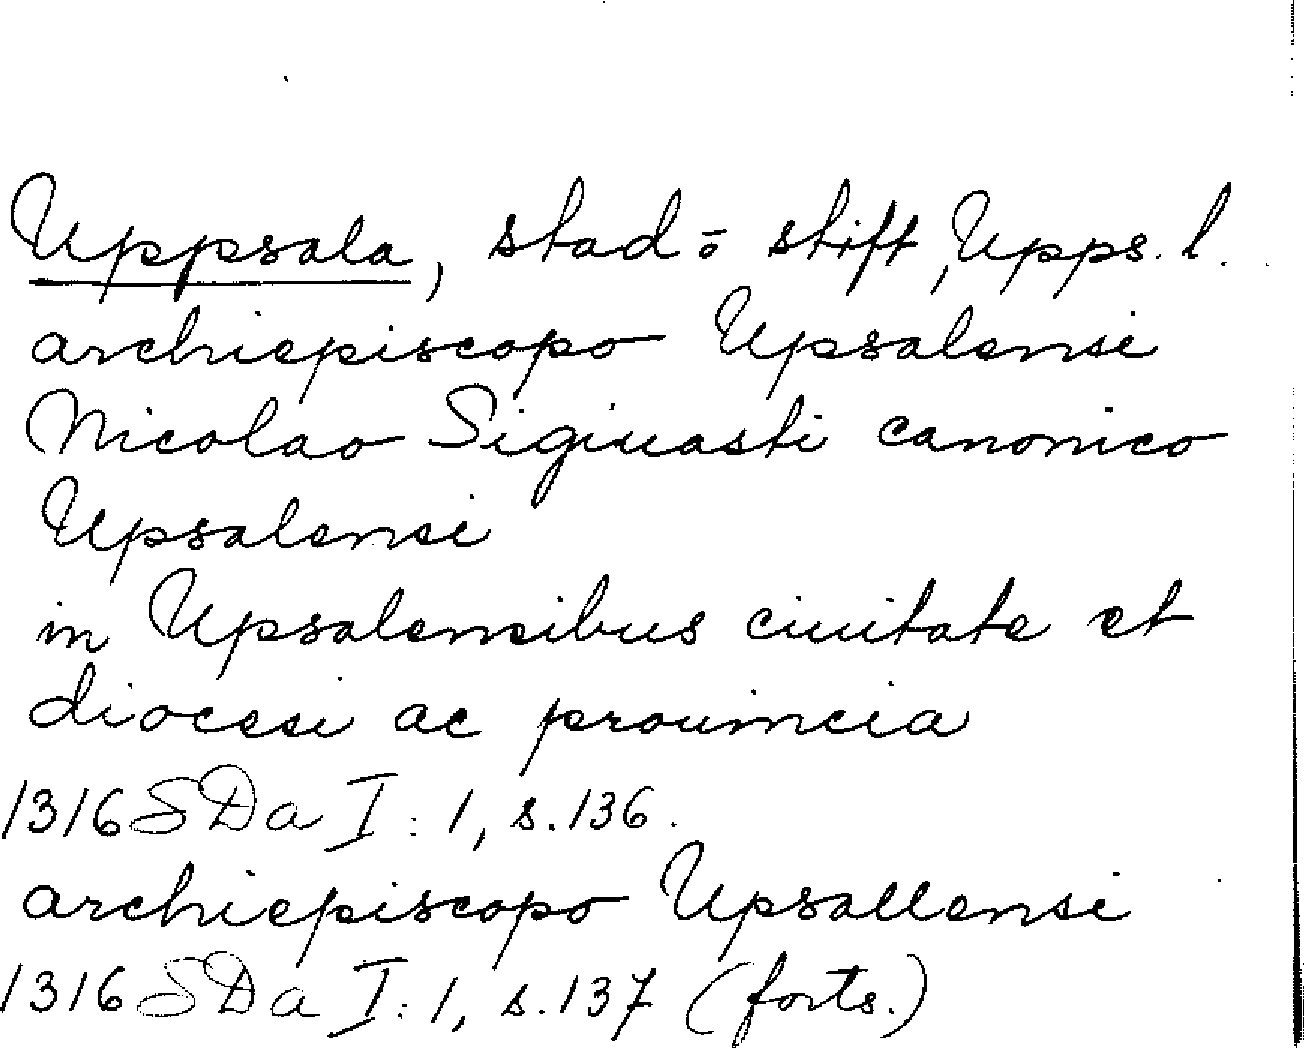 Uppsala, stad o. stift, Upps. l.
archiepiscopo Upsalensi
Nicolao Sigiuasti canonico
Upsalensi
in Upsalensibus ciuitate et
diocesi ac prouincia
1316 SDa I: 1, s. 136.
archiepiscopo Upsallensi
1316 SDa I: 1, s. 137 (forts.)